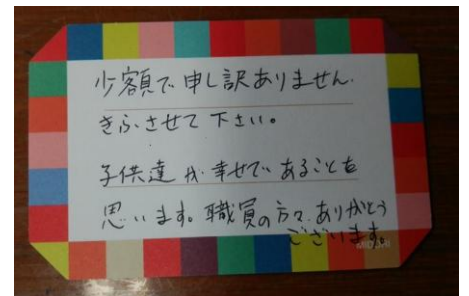 少額で申し訳ありません.
きふさせて下さい。
子供達が幸せであることを
思います。職員の方々、ありがとう
ございます。
MIDORI